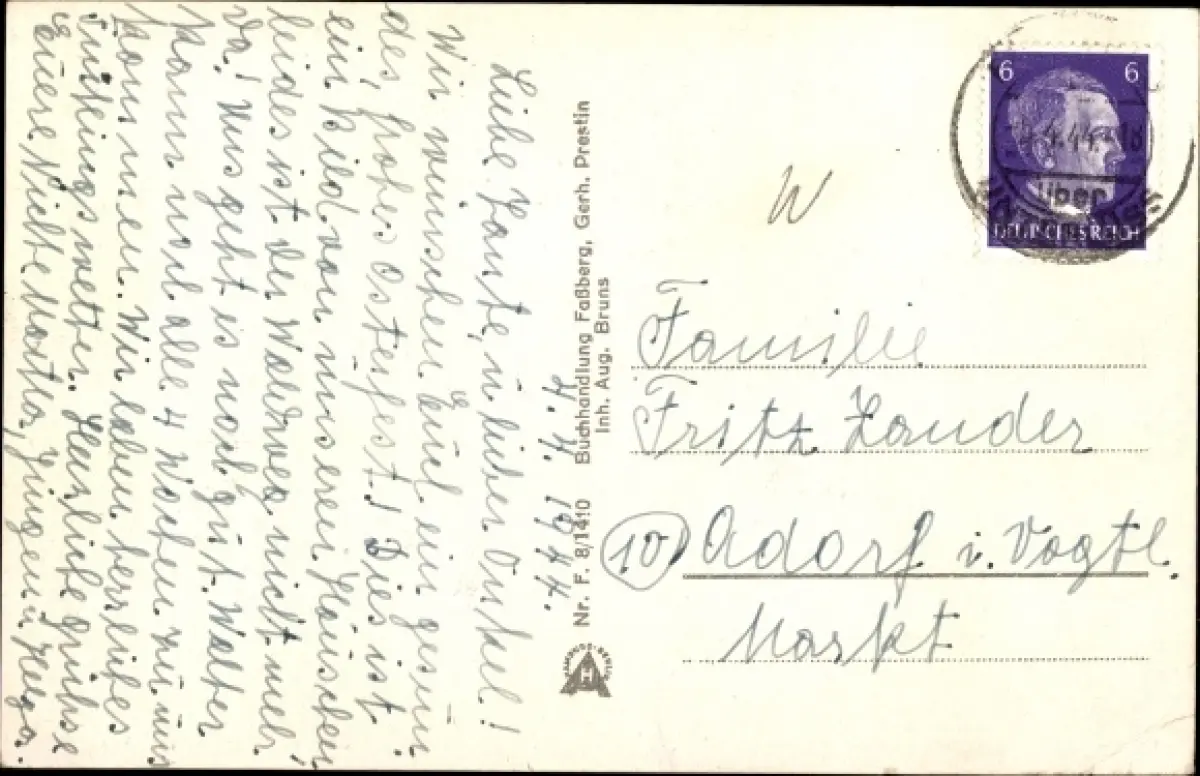 4.4.1944.
Liebe Tante, u. lieber Onkel!
Wir wünschen Euch ein gesun
des, frohes Osterfest! Dies ist
ein Bild von unseren Häuschen
leider ist der Waldweg nicht mehr
da! Uns geht es noch gut. Walter
kann noch alle 4 Wochen zu uns
kommen. Wir haben herrliches
Frühlingswetter. Herzliche Grühse
Eüere Nichte Martha, Jürgen u. Helga.
Nr. F. 8/1410 Buchhandlung Faßberg, Gerh. Prestin
Inh. Aug. Bruns
H
6 6
4.44
über
DEUTSCHES REICH
W
Familie
Fritz Zander
(10) Adorf i. Vogtl.
Markt